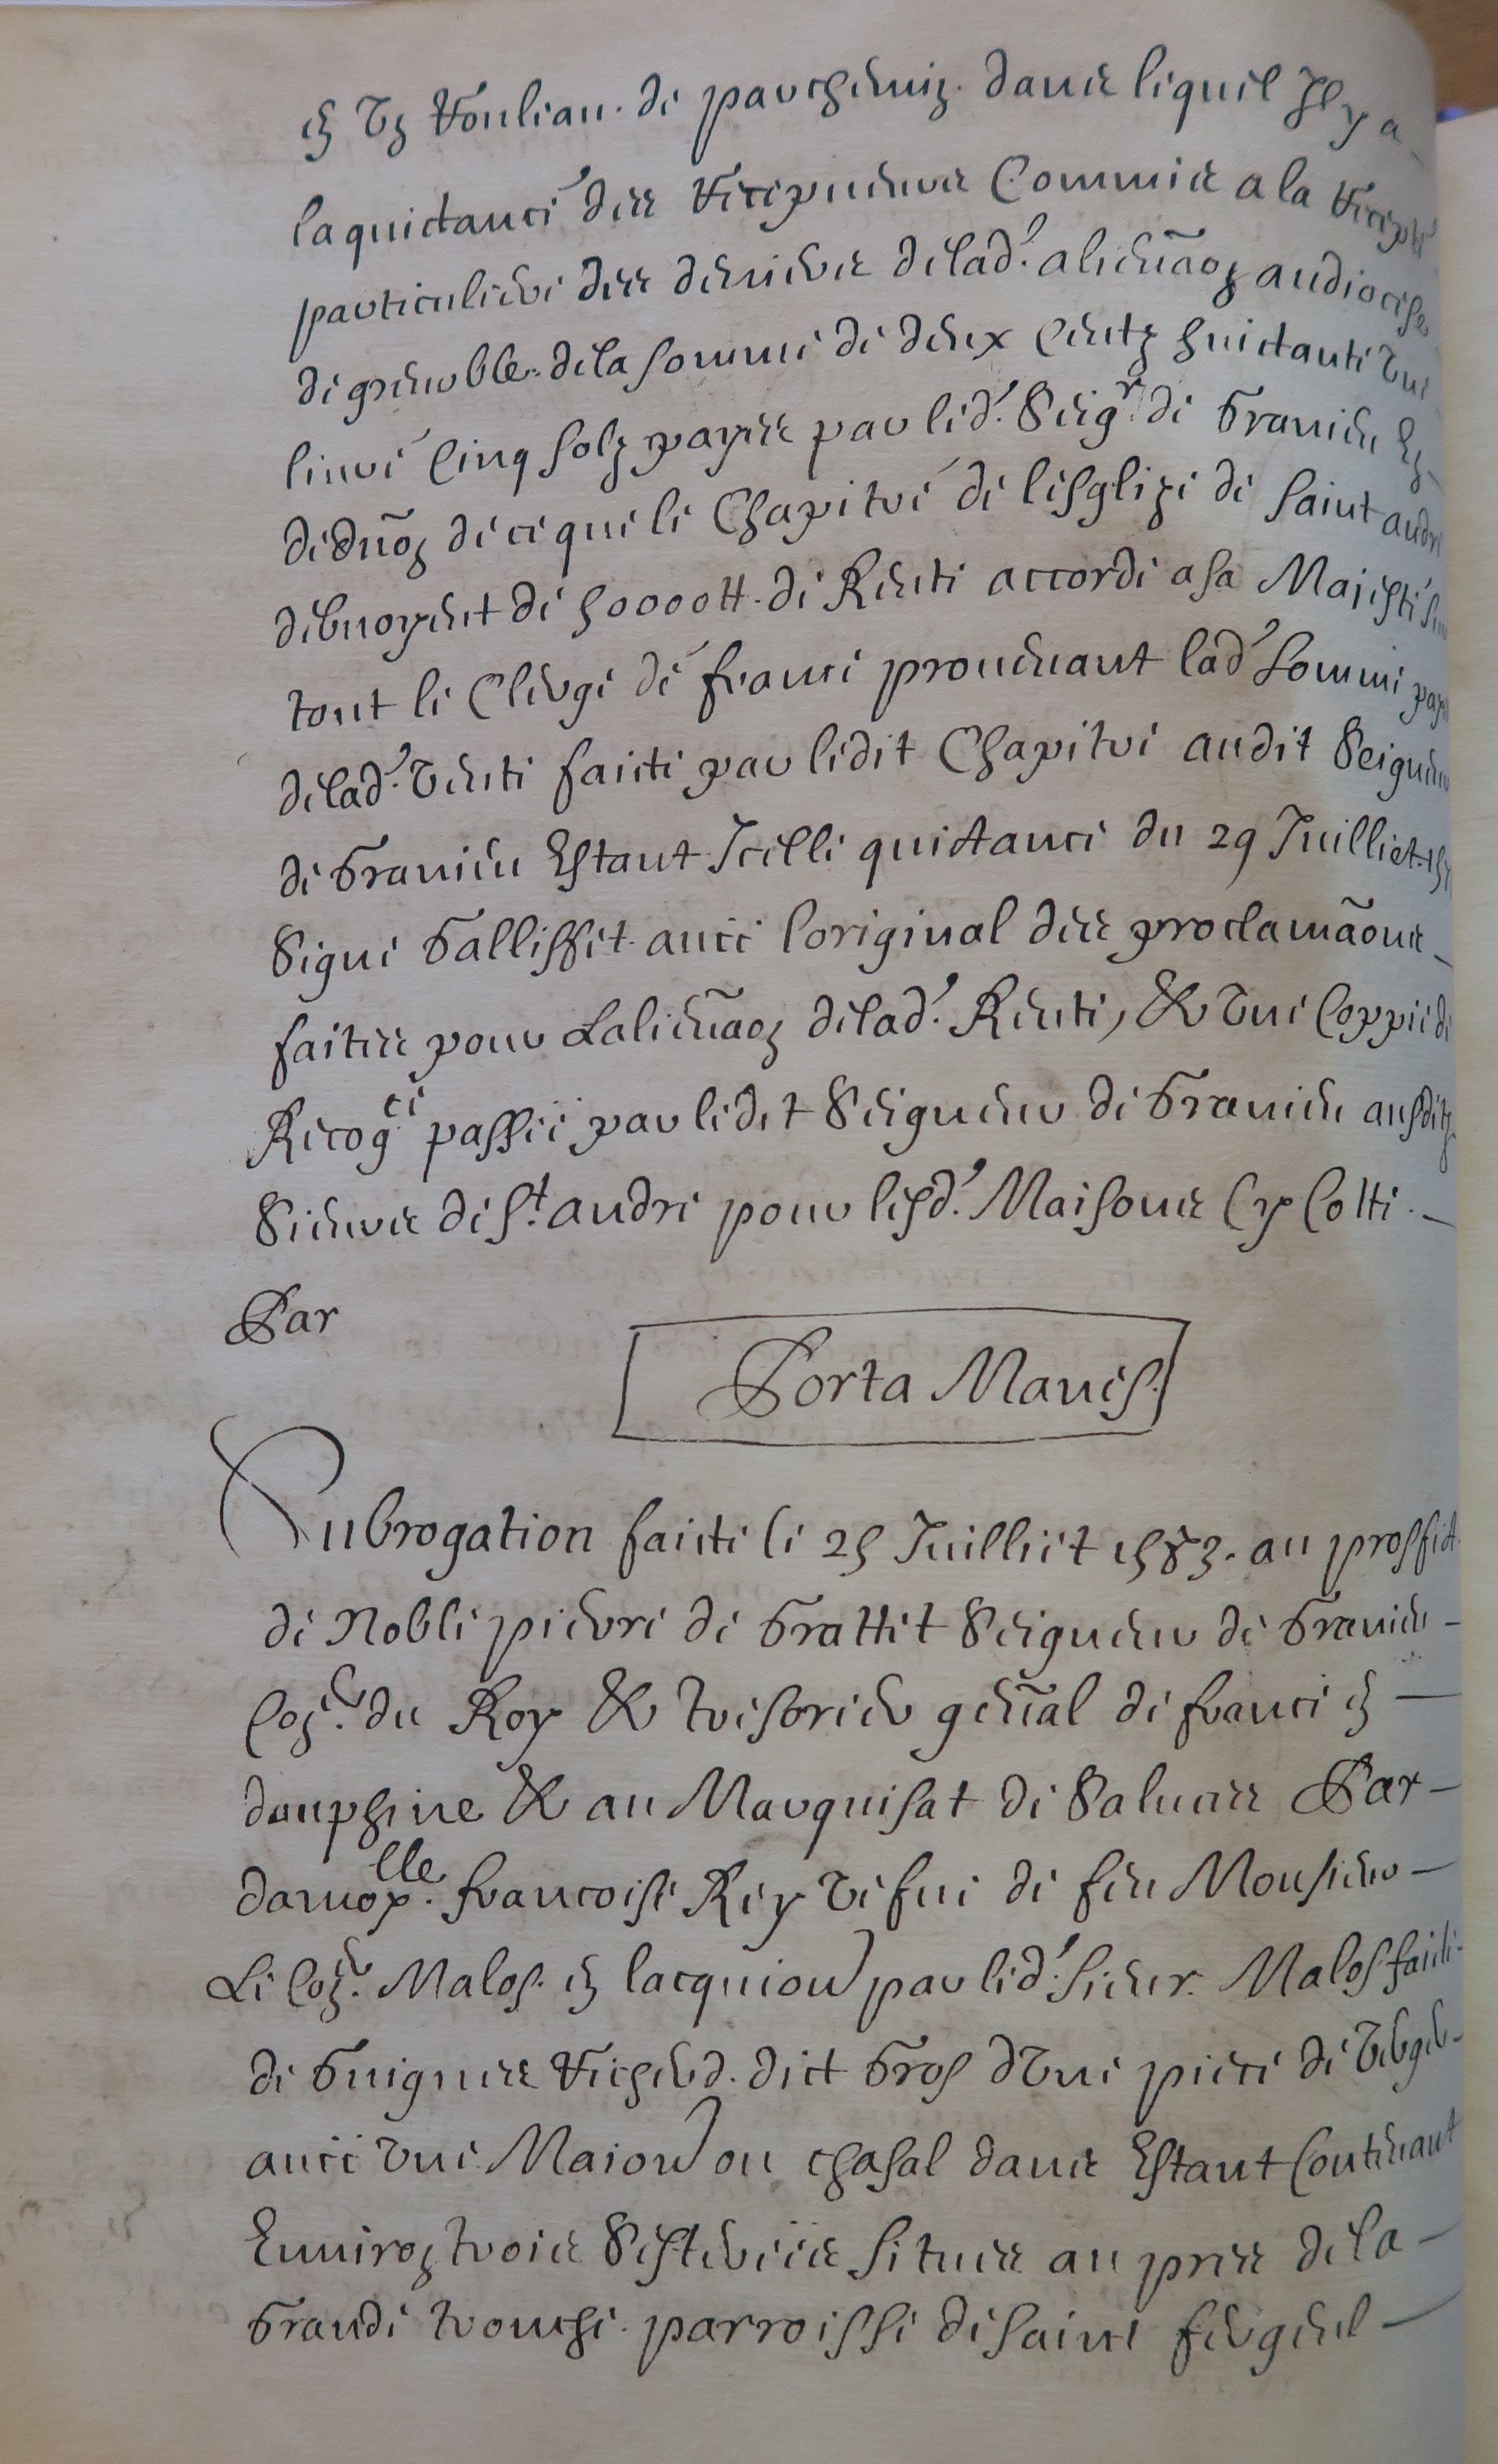 en Ung Rouleau de parchemin dans lequel Il y a
la quictance des Receveurs Commis a la Recepte
particuliere des deniers de lad. alienaon au diocese
de grenoble de la somme de deux Centz huictante Une
livre Cinq solz payes par led. Seigr de Granieu En
deduon de ce que le Chapitre de lesglize de saint andre
debvoyent de 50000 tt de Rente accorde a sa Majesté
tout le Clerge de france provenant lad. somme
de lad. Vente faicte par ledit Chapitre audit Seigneur
de Granieu Estant Icelle quictance du 29 Juilliet
Signe Gallisset avec loriginal des proclamaons
faites pour Lalienaon de lad. Rente, & Une Coppie de
Recogce passee par ledit Seigneur de Granieu ausditz
Sieurs de St andre pour lesd. Maisons Cy Cotte
Par
Porta Maues.
Subrogation faicte le 25 Juilliet 1583. au proffict
de Noble pierre de Grattet Seigneur de Granieu
Coner du Roy & tresorier genal de france en
dauphine & au Marquisat de Saluces Par
damoylle francoise Rey vefve de feu Monsieur
Le Coner Malos en lacquion par led. sieur Malos faicte
de Guigues Richerd dict Gros dUne piece de Verger
avec une Maion ou chasal dans Estant Contenant
Environ trois Sesterees situes au pres de la
Grande tronche parroisse de saint fergeul